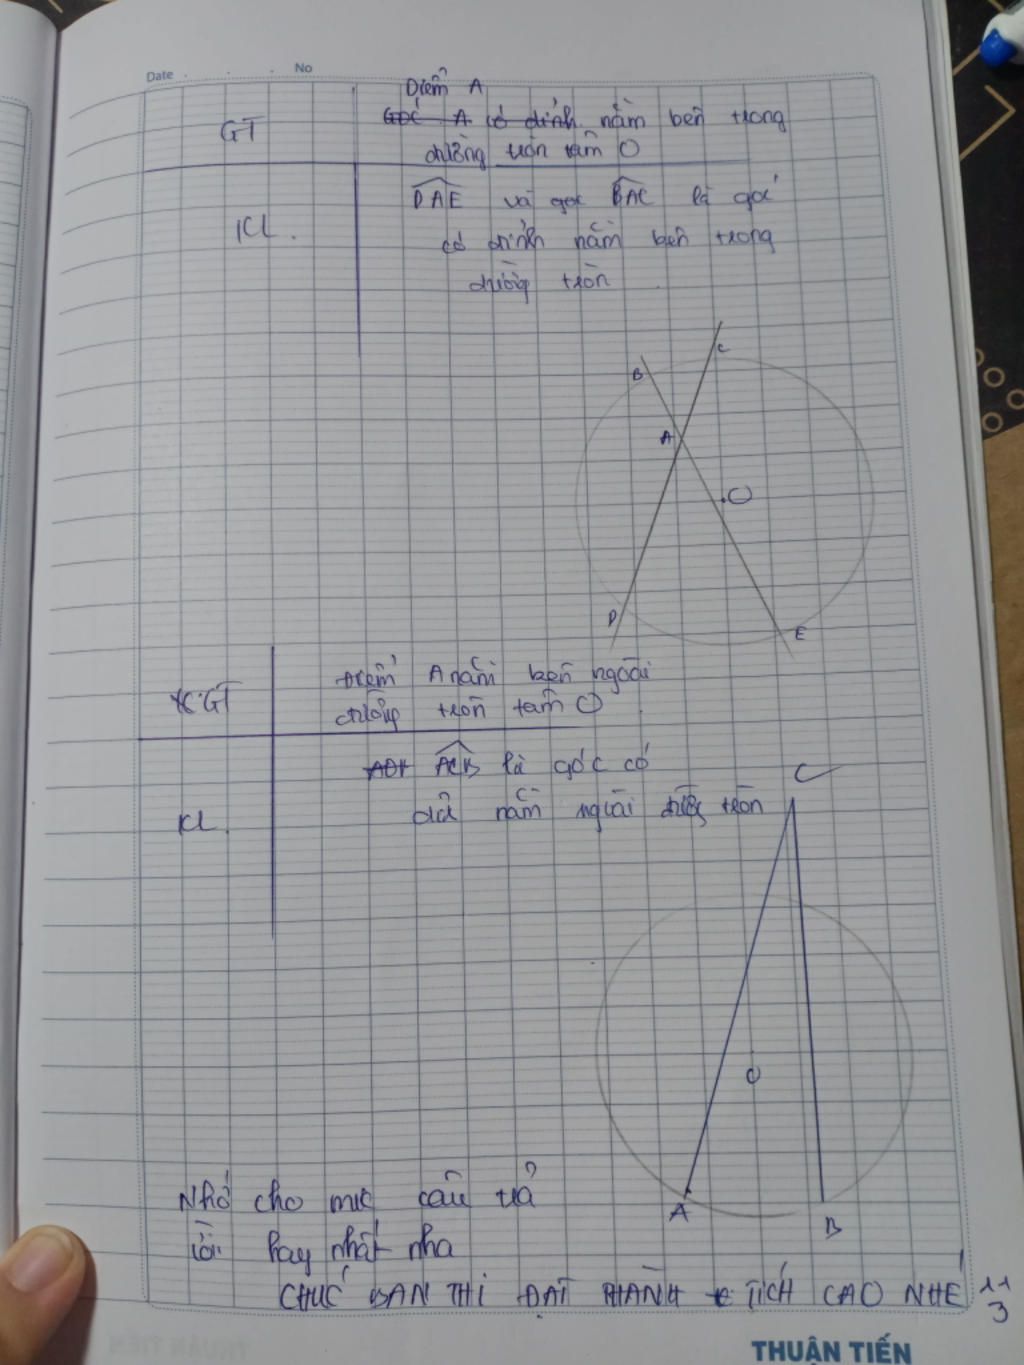 Date No
Điểm A
GÓC A có đỉnh nằm bên trong
GT
đường tròn tâm O
DAE và góc BAC là góc
KL.
có đỉnh nằm bên trong
đường tròn
C
B
A
O
D
E
Điểm A nằm bên ngoài
GT
đường tròn tâm O
ACB là góc có
C
KL.
nằm ngoài đường tròn
O
Nhớ cho mk câu trả
A
B
lời hay nhất nha
CHÚC BẠN THI ĐẠT THÀNH TÍCH CAO NHÉ
THUẬN TIẾN